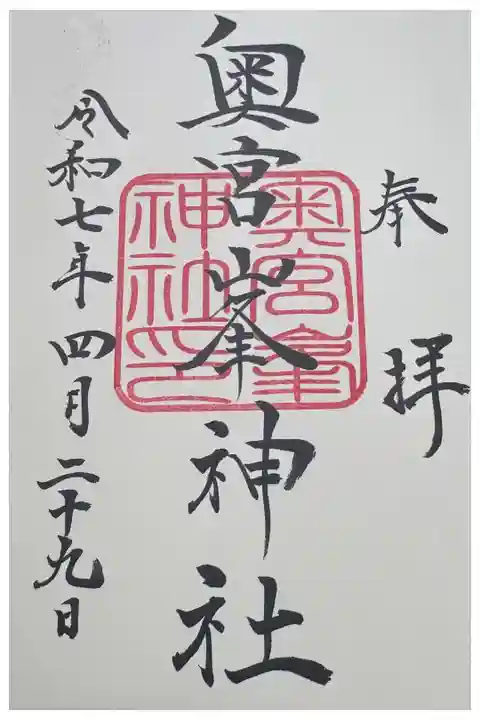 奉拝
奥宮峯神社
奥宮峯
神社印
令和七年四月二十九日